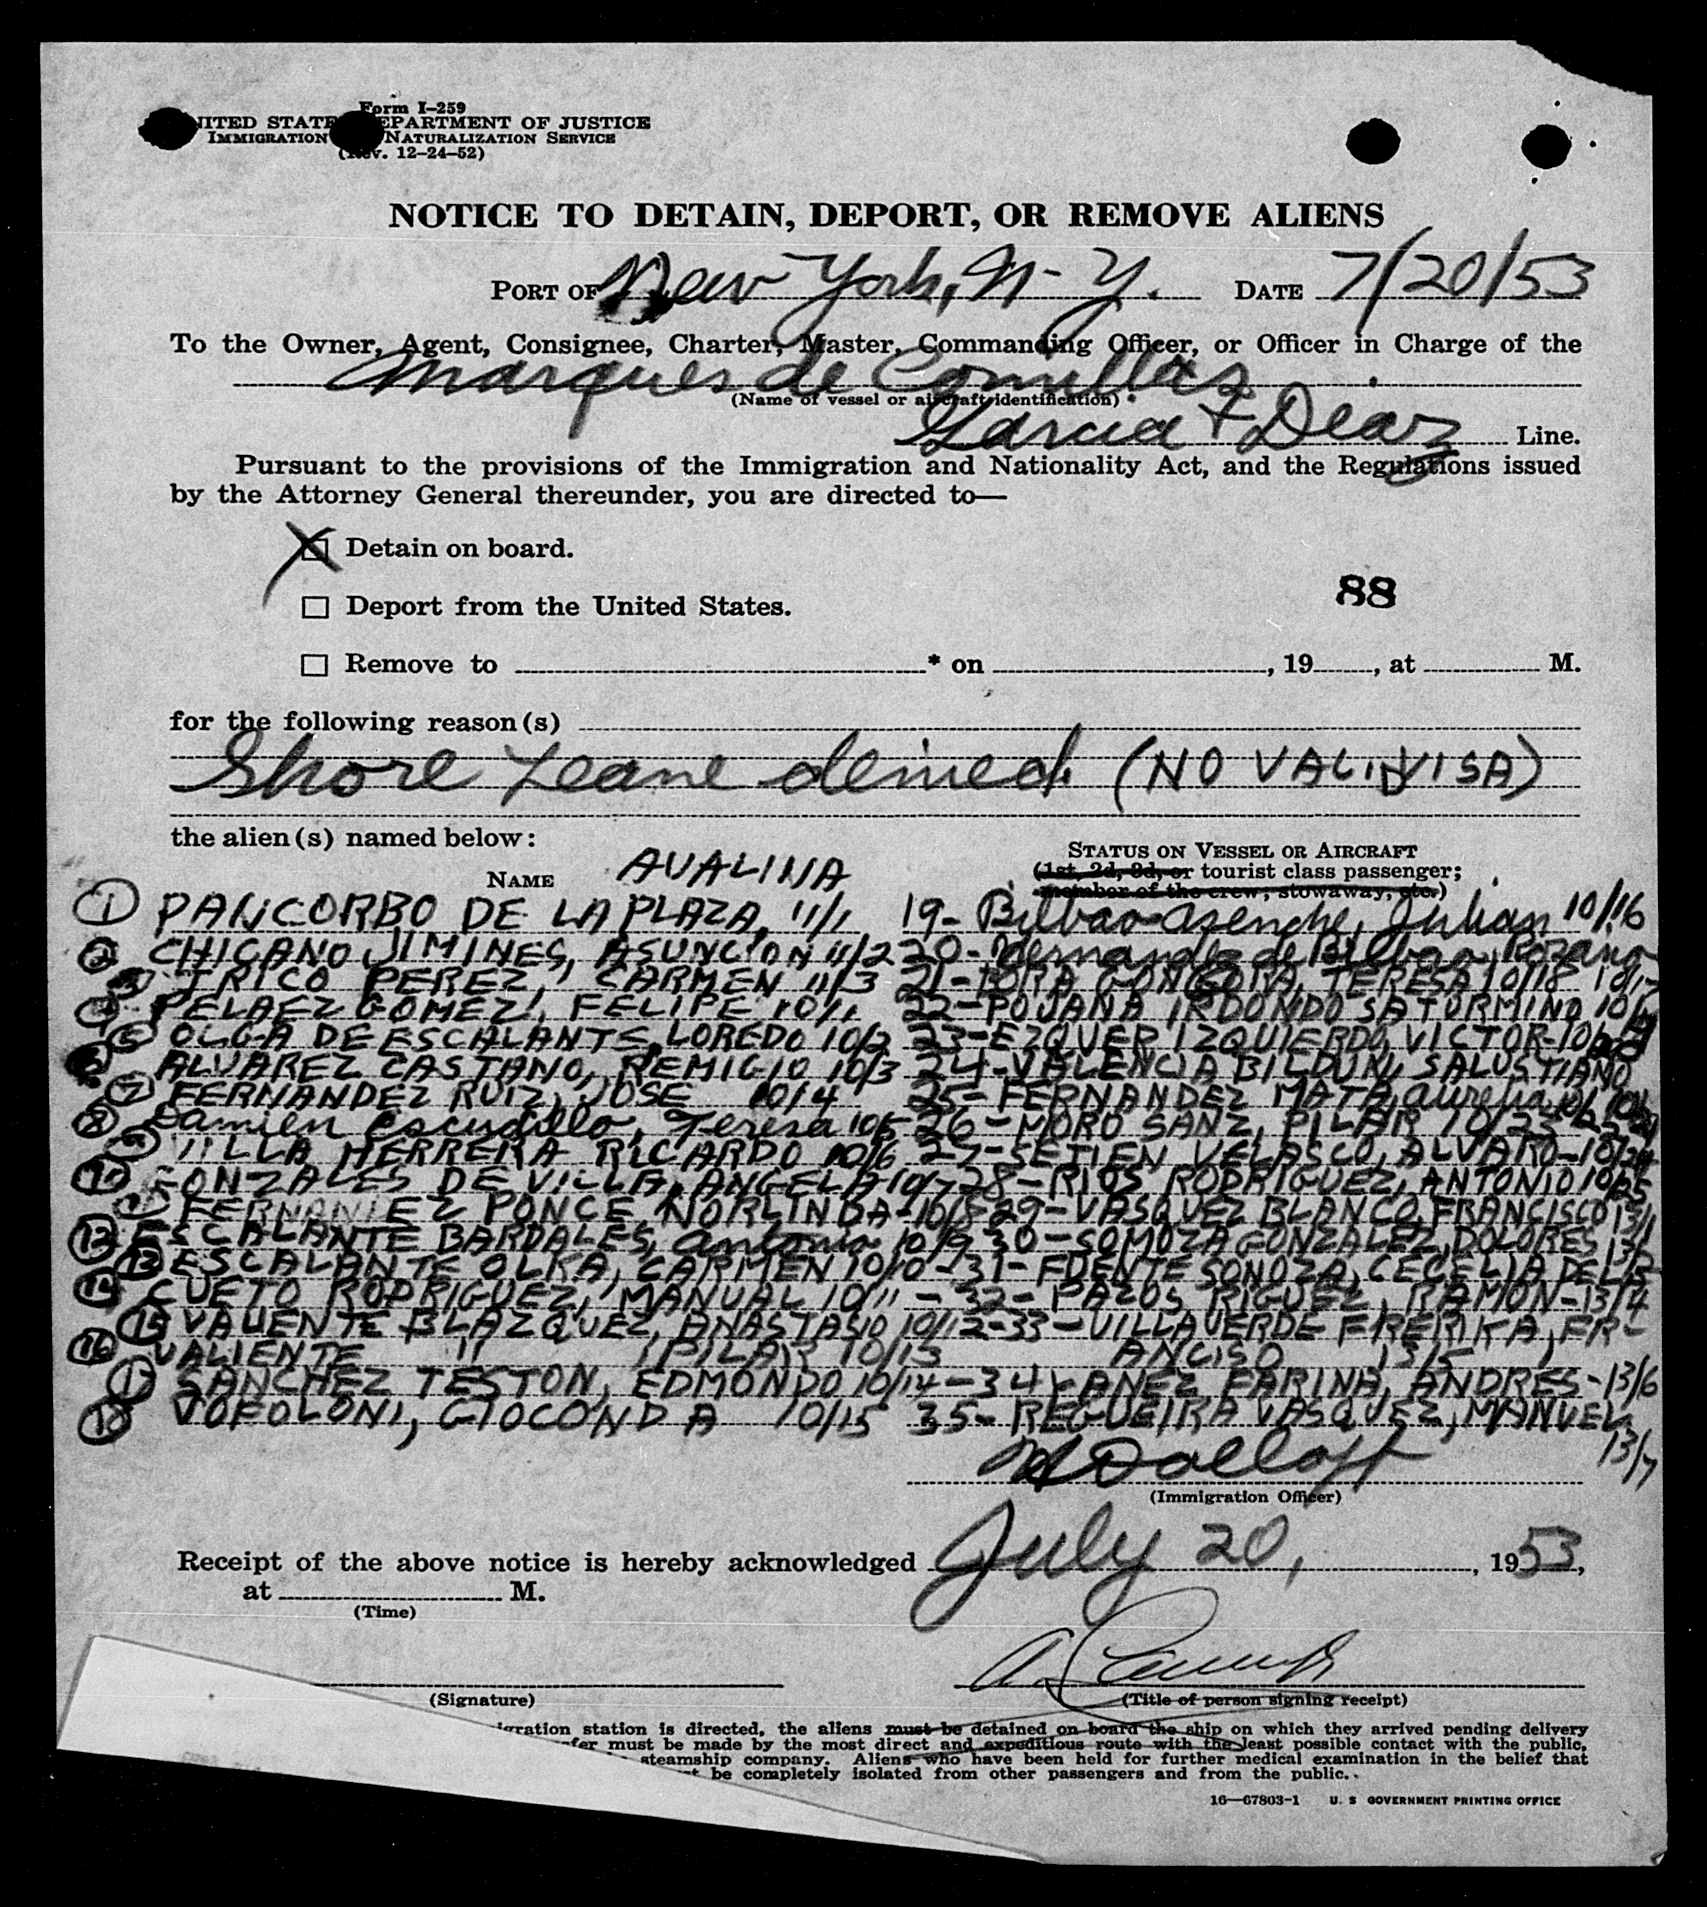 Form I-259
UNITED STATES DEPARTMENT OF JUSTICE
IMMIGRATION NATURALIZATION SERVICE
(Rev. 12-24-52)
NOTICE TO DETAIN, DEPORT, OR REMOVE ALIENS
PORT OF New York, N-Y. DATE 7/20/53
To the Owner, Agent, Consignee, Charter, Master, Commanding Officer, or Officer in Charge of the
Marques de Comillas
(Name of vessel or aircraft identification)
Garcia + Diaz Line.
Pursuant to the provisions of the Immigration and Nationality Act, and the Regulations issued
by the Attorney General thereunder, you are directed to—
X Detain on board.
88
Deport from the United States.
Remove to * on , 19 , at M.
for the following reason(s)
Shore Leave denied (NO VALID VISA)
the alien(s) named below:
STATUS ON VESSEL OR AIRCRAFT
NAME AVALINA (1st, 2d, 3d, or tourist class passenger;
member of the crew; stowaway, etc.)
1 PANCORBO DE LA PLAZA, 11/1 19- Bilbao Julian 10/16
2 CHICANO JIMINES, ASUNCION 11/2 20- Hernandez de Bilbao,
3 TRICO PEREZ, CARMEN 11/3 21- GONGORA, TERESA 10/18 10/17
4 PELAEZ GOMEZ, FELIPE 10/1 22- POJANA IRDONDO SATURMINO
5 OLGA DE ESCALANTE, LOREDO 10/2 23- EZQUER IZQUIERDO, VICTOR
6 ALVAREZ CASTANO, REMIGIO 10/3 24- VALENCIA BILDUN, SALUSTIANO
7 FERNANDEZ RUIZ, JOSE 10/4 25- FERNANDEZ MATA, Aurelia
8 Damien Escudillo, Teresa 10/5 26- MORO SANZ, PILAR 10/23
9 VILLA HERRERA RICARDO 10/6 27- SETIEN VELASCO, ALVARO- 10/24
10 GONZALES DE VILLA, ANGELA 10/7 28- RIOS RODRIGUEZ, ANTONIO 10/25
11 FERNANDEZ PONCE NORLINDA- 10/8 29- VASQUEZ BLANCO, FRANCISCO 13/1
12 ESCALANTE BARDALES, Antonio 10/9 30- SOMOZA GONZALEZ, DOLORES 13/2
13 ESCALANTE OLKA, CARMEN 10/10- 31- FUENTE SONOZA, CECELIA DE LA
14 CUETO RODRIGUEZ, MANUAL 10/11- 32- PAZOS RIGUEZ, RAMON- 13/4
15 VALIENTE BLAZQUEZ, ANASTASIO 10/12- 33- VILLAVERDE FRERIKA, FR-
16 VALIENTE " , PILAR 10/13 ANCISO 13/5
17 SANCHEZ TESTON, EDMONDO 10/14- 34 YANEZ FARINA, ANDRES- 13/6
18 VOFOLONI, GIOCONDA 10/15 35- REGUEIRA VASQUEZ, MANUEL
13/7
(Immigration Officer)
Receipt of the above notice is hereby acknowledged July 20, , 1953,
at M.
(Time)
(Signature) (Title of person signing receipt)
station is directed, the aliens must be detained on board the ship on which they arrived pending delivery
must be made by the most direct and expeditious route with the least possible contact with the public,
steamship company. Aliens who have been held for further medical examination in the belief that
be completely isolated from other passengers and from the public.
16—67803-1 U. S. GOVERNMENT PRINTING OFFICE